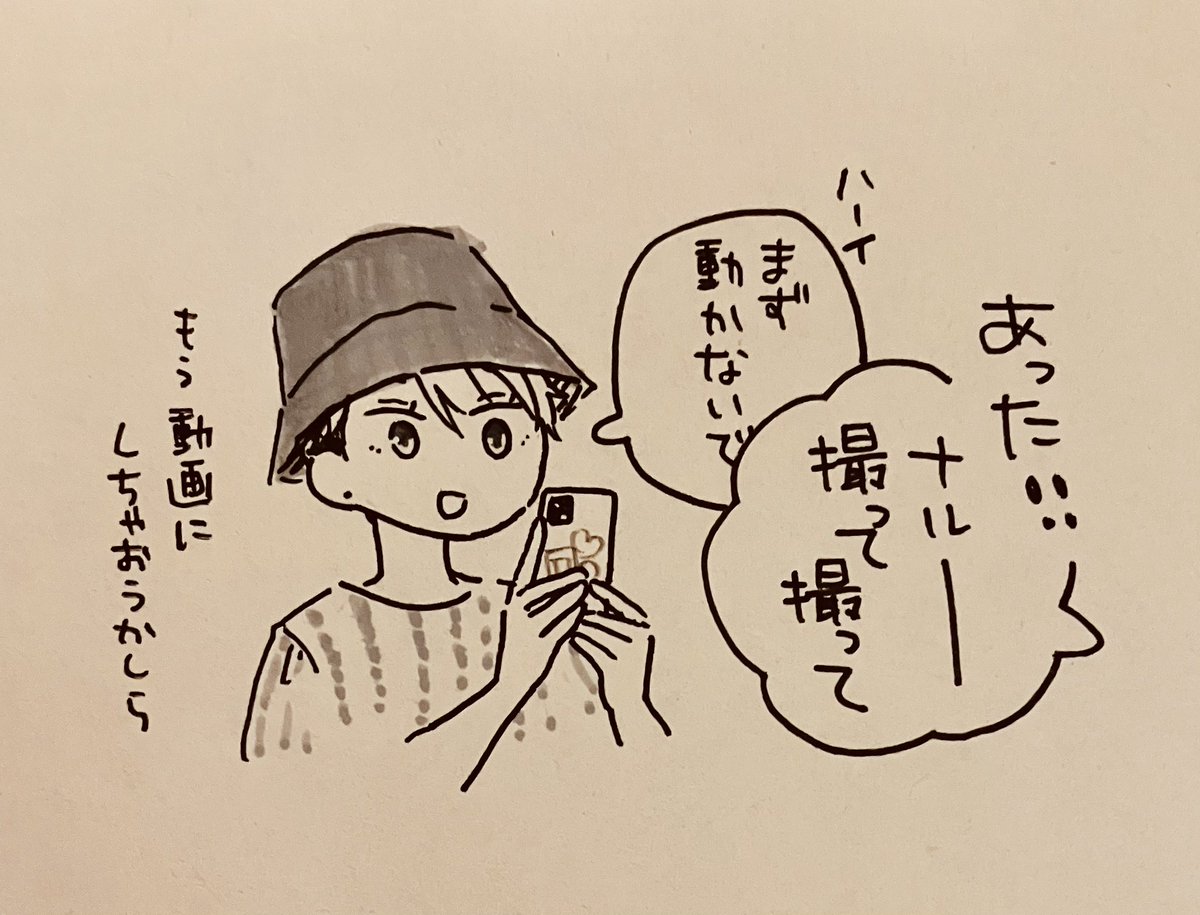 あった!!
ナルー
撮って
撮って
ハーイ
まず
動かないで
もう動画に
しちゃおうかしら